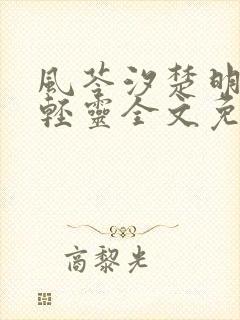 風苓汐楚明
輕靈全文免
高黎光